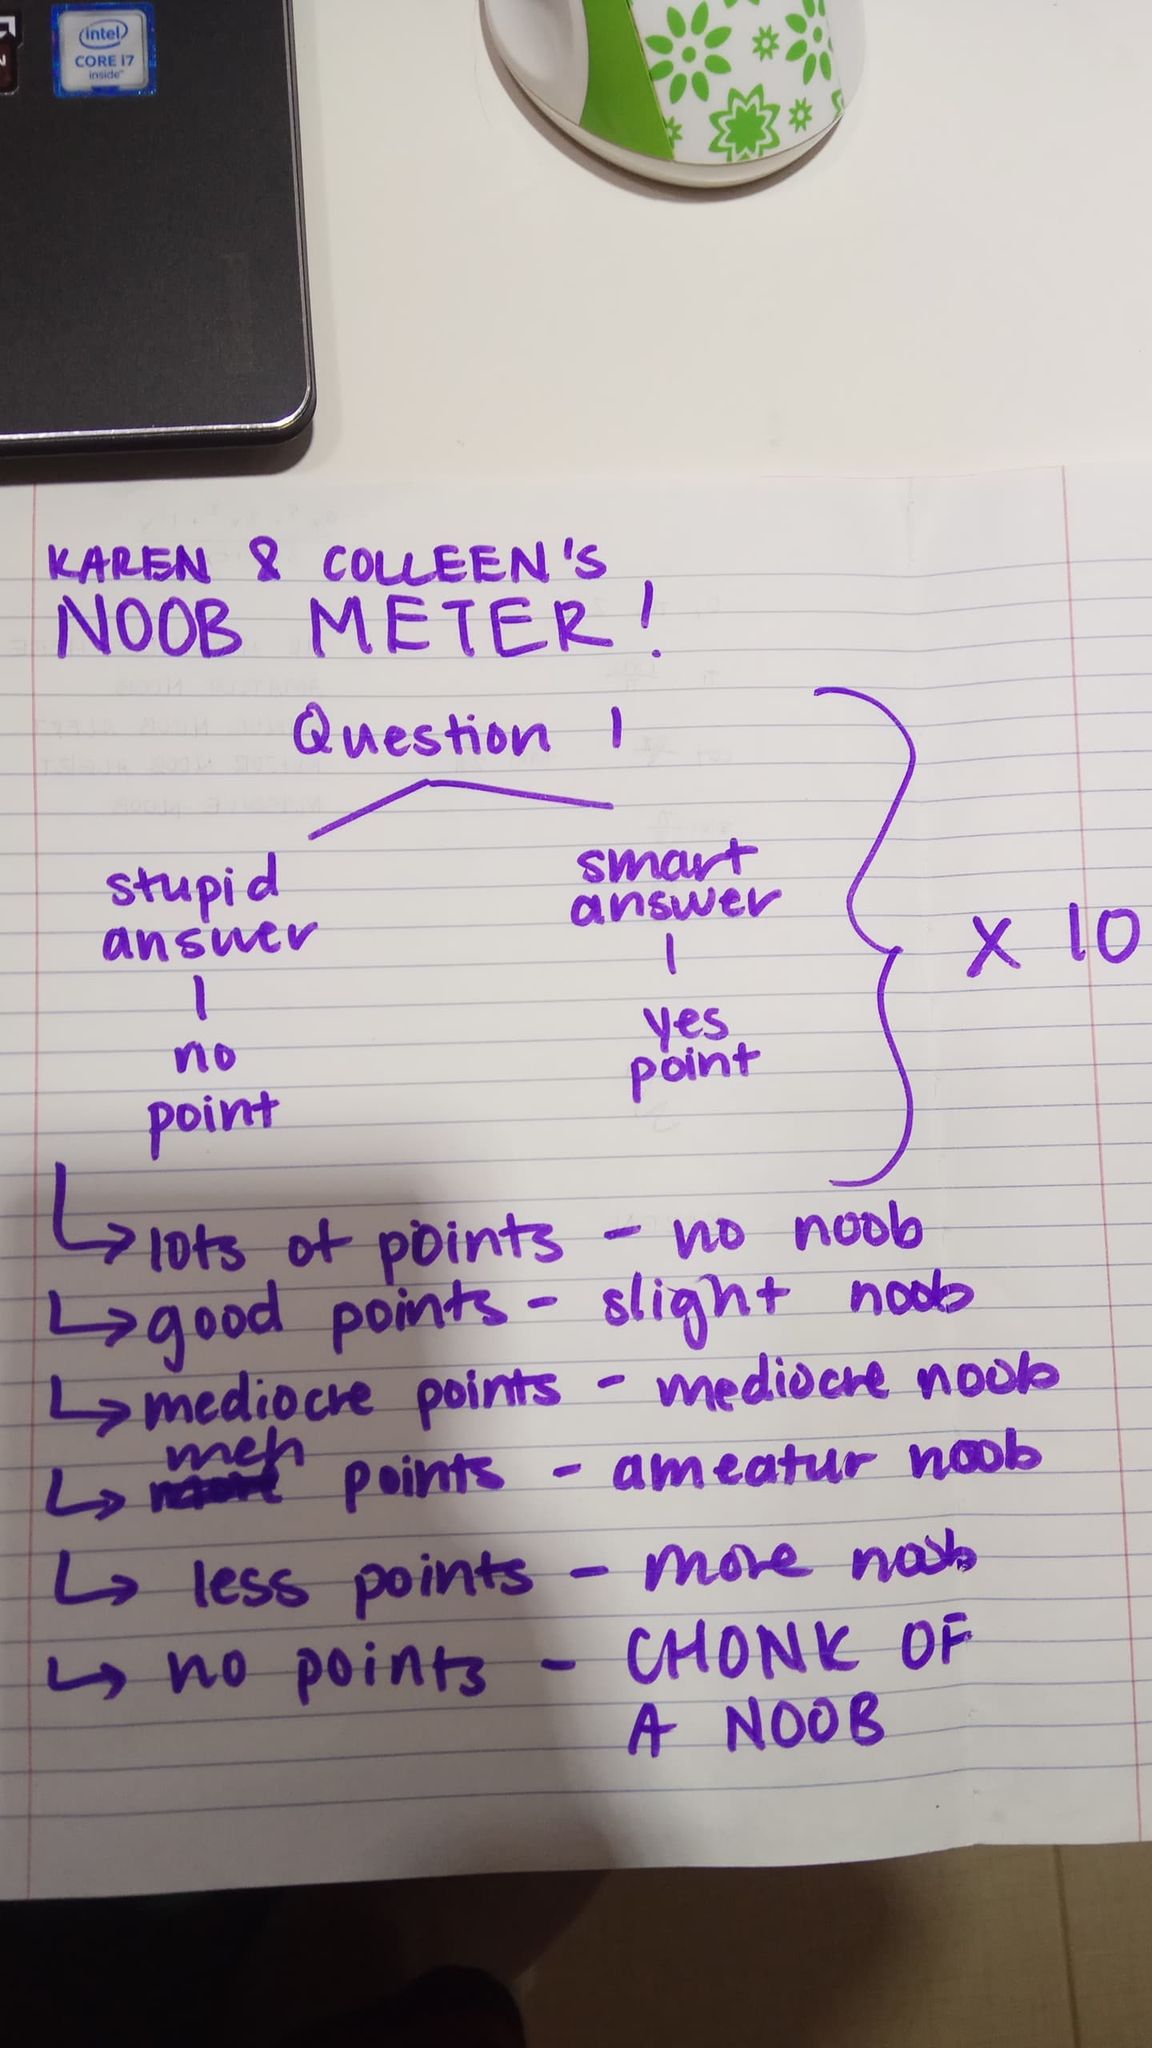 intel
CORE i7
inside
KAREN & COLLEEN'S
NOOB METER!
Question 1
stupid
answer
no
point
smart
answer
yes
point
X 10
lots of points - no noob
good points - slight noob
mediocre points - mediocre noob
meh points - ameatur noob
less points - more noob
no points - CHONK OF
A NOOB